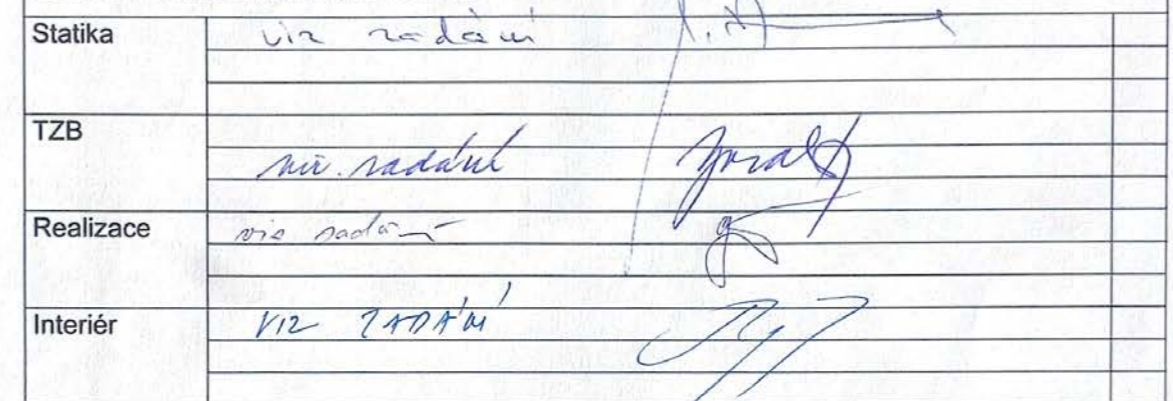 Statika viz zadání
TZB viz zadání
Realizace viz zadání
Interiér VIZ ZADÁNÍ